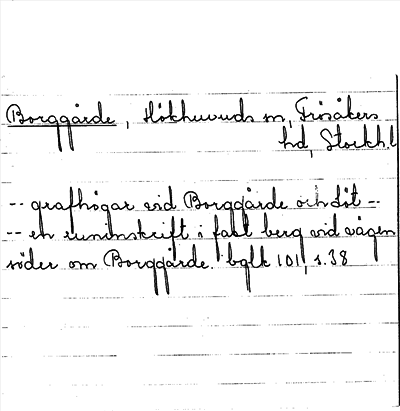 Borggärde, Hökhuvuds sn, Frösåkers
hd, Stockh.l
-- grafhögar vid Borggärde och Löt --
-- en runinskrift i fast berg vid vägen
söder om Borggärde. bglk 101, s. 38